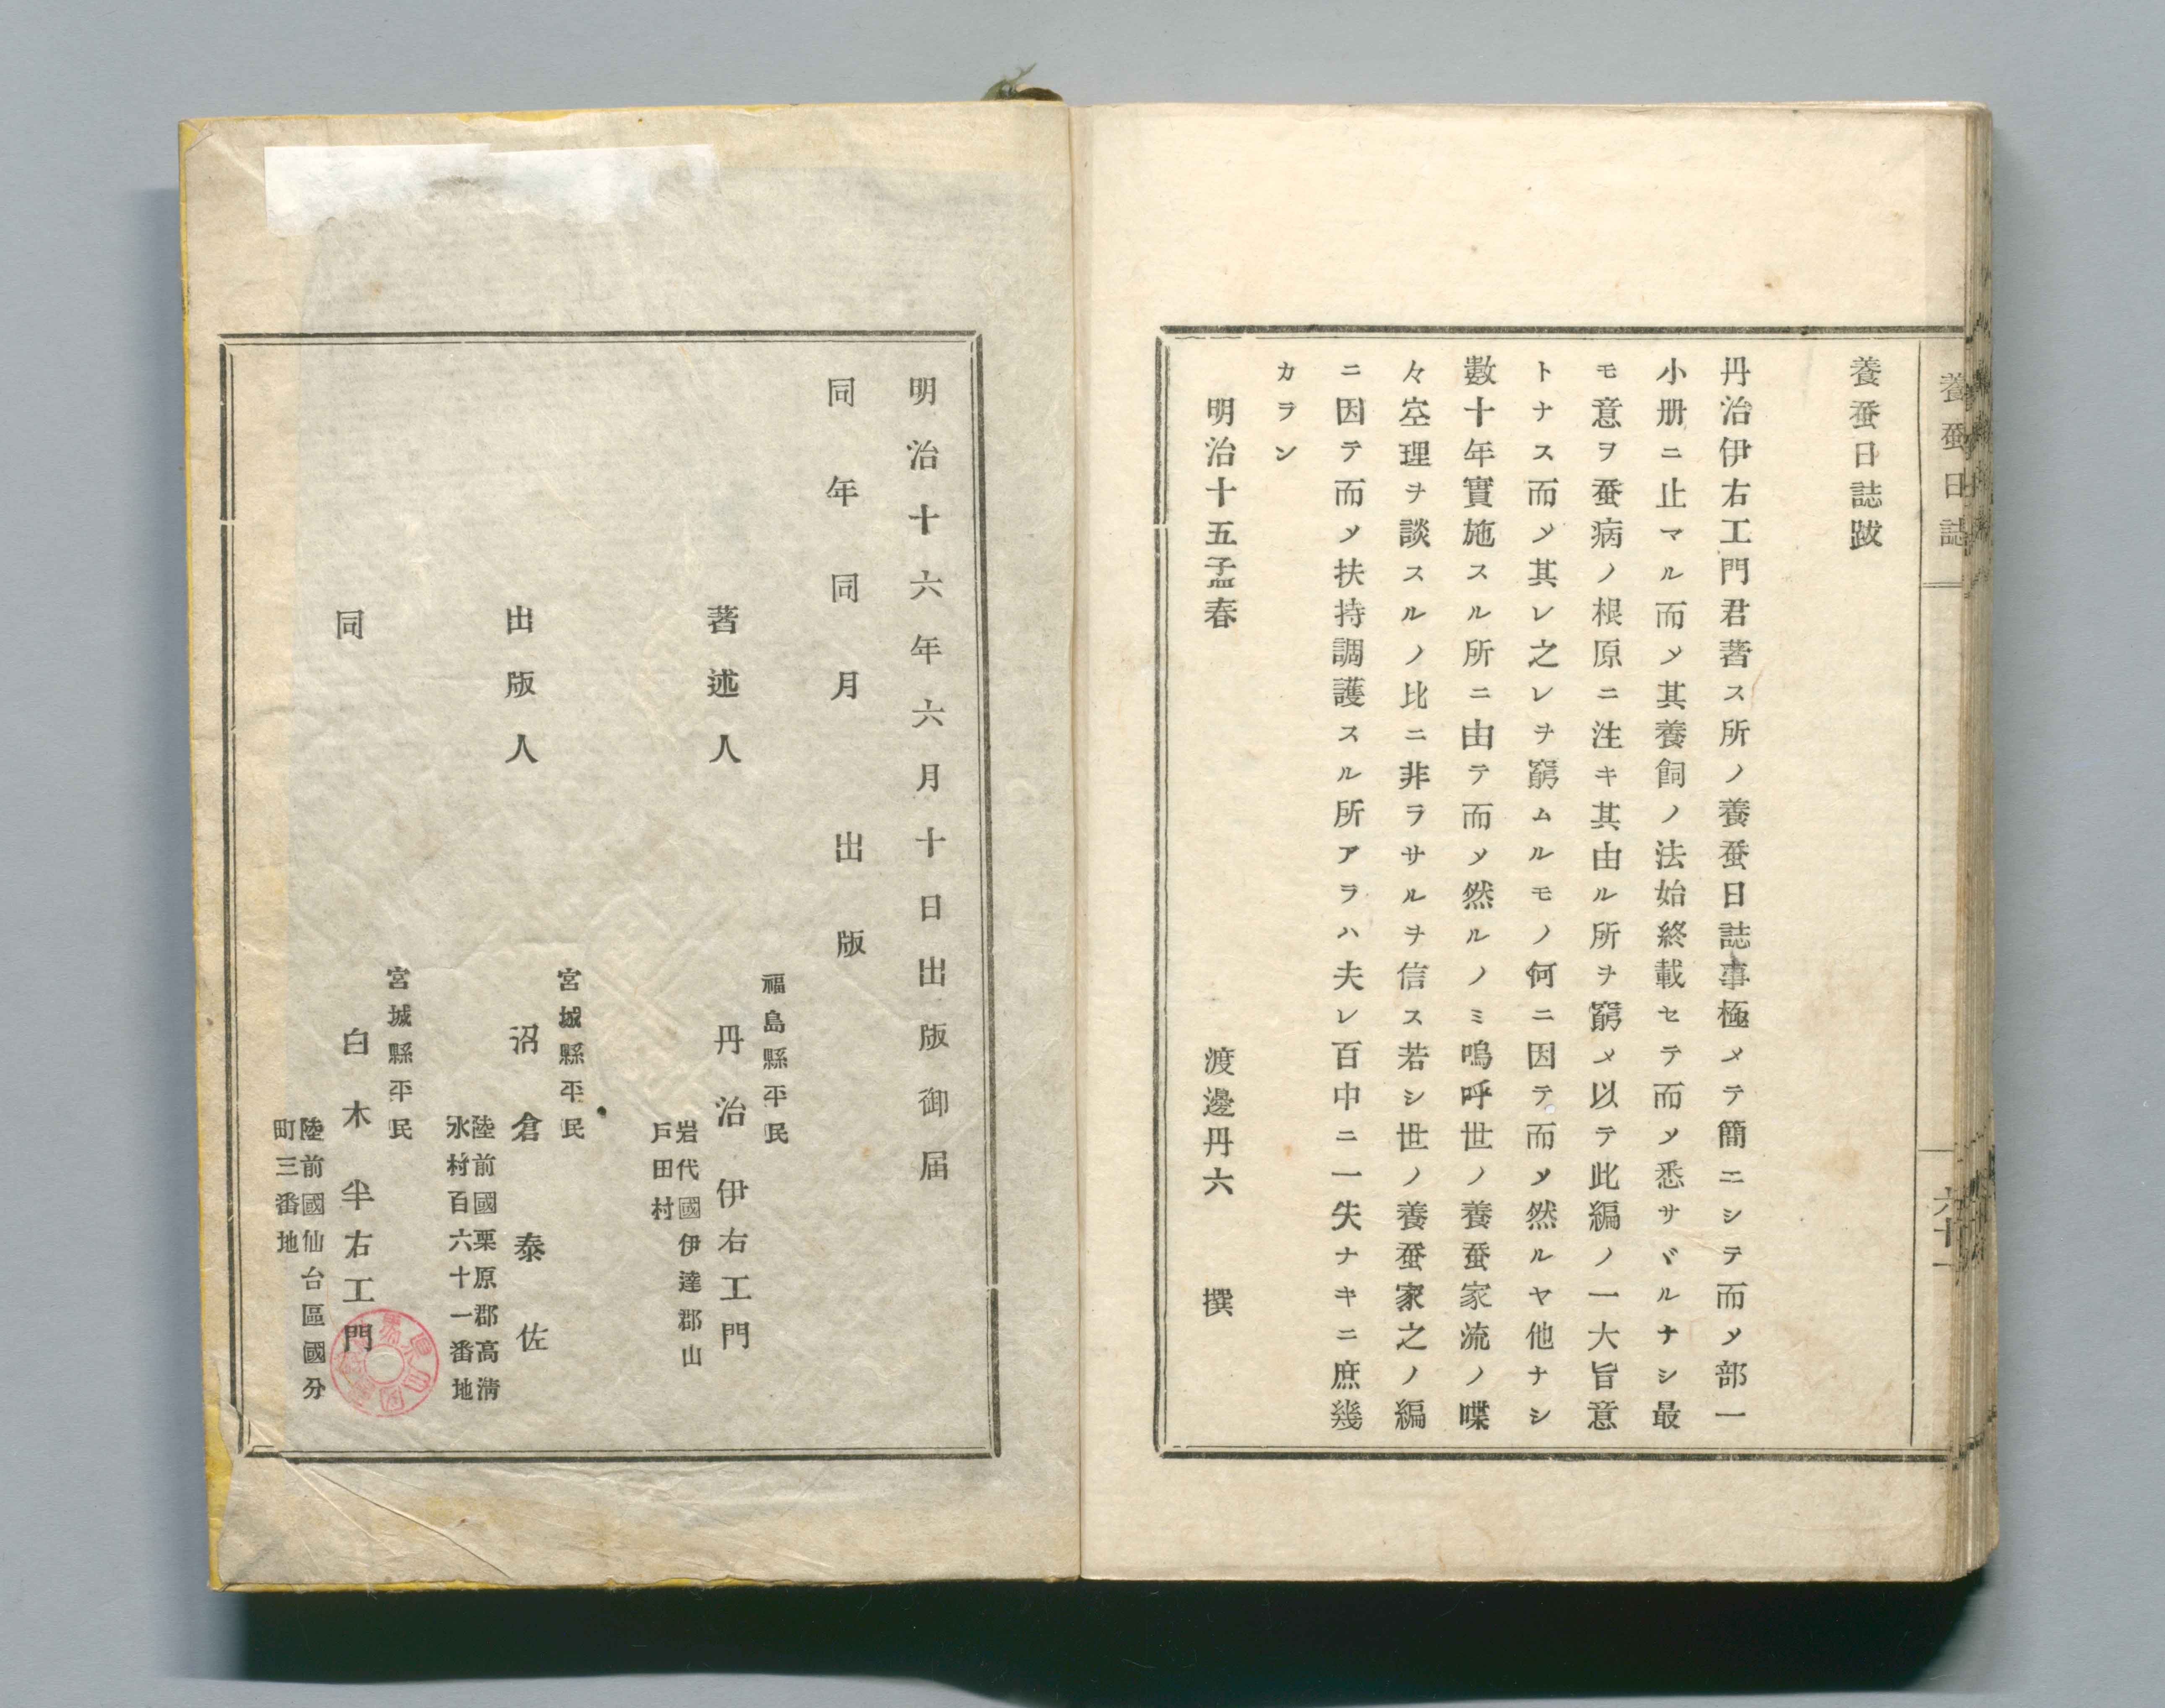 養蚕日誌
六十一
養蚕日誌跋
丹治伊右工門君著ス所ノ養蚕日誌事極メテ簡ニシテ而メ部一
小册ニ止マル而メ其養飼ノ法始終載セテ而メ悉サヾルナシ最
モ意ヲ蚕病ノ根原ニ注キ其由ル所ヲ窮メ以テ此編ノ一大旨意
トナス而メ其レ之レヲ窮ムルモノ何ニ因テ而メ然ルヤ他ナシ
數十年實施スル所ニ由テ而メ然ルノミ嗚呼世ノ養蚕家流ノ喋
々空理ヲ談スルノ比ニ非ラサルヲ信ス若シ世ノ養蚕家之ノ編
ニ因テ而メ扶持調護スル所アラハ夫レ百中ニ一失ナキニ庶幾
カラン
明治十五孟春 渡邊丹六 撰
明治十六年六月十日出版御届
同年同月 出版
福島縣平民
著述人 丹治伊右工門
岩代國伊達郡山
戸田村
宮城縣平民
出版人 沼倉泰佐
陸前國栗原郡高淸
水村百六十一番地
宮城縣平民
同 白木半右工門
陸前國仙台區國分
町三番地